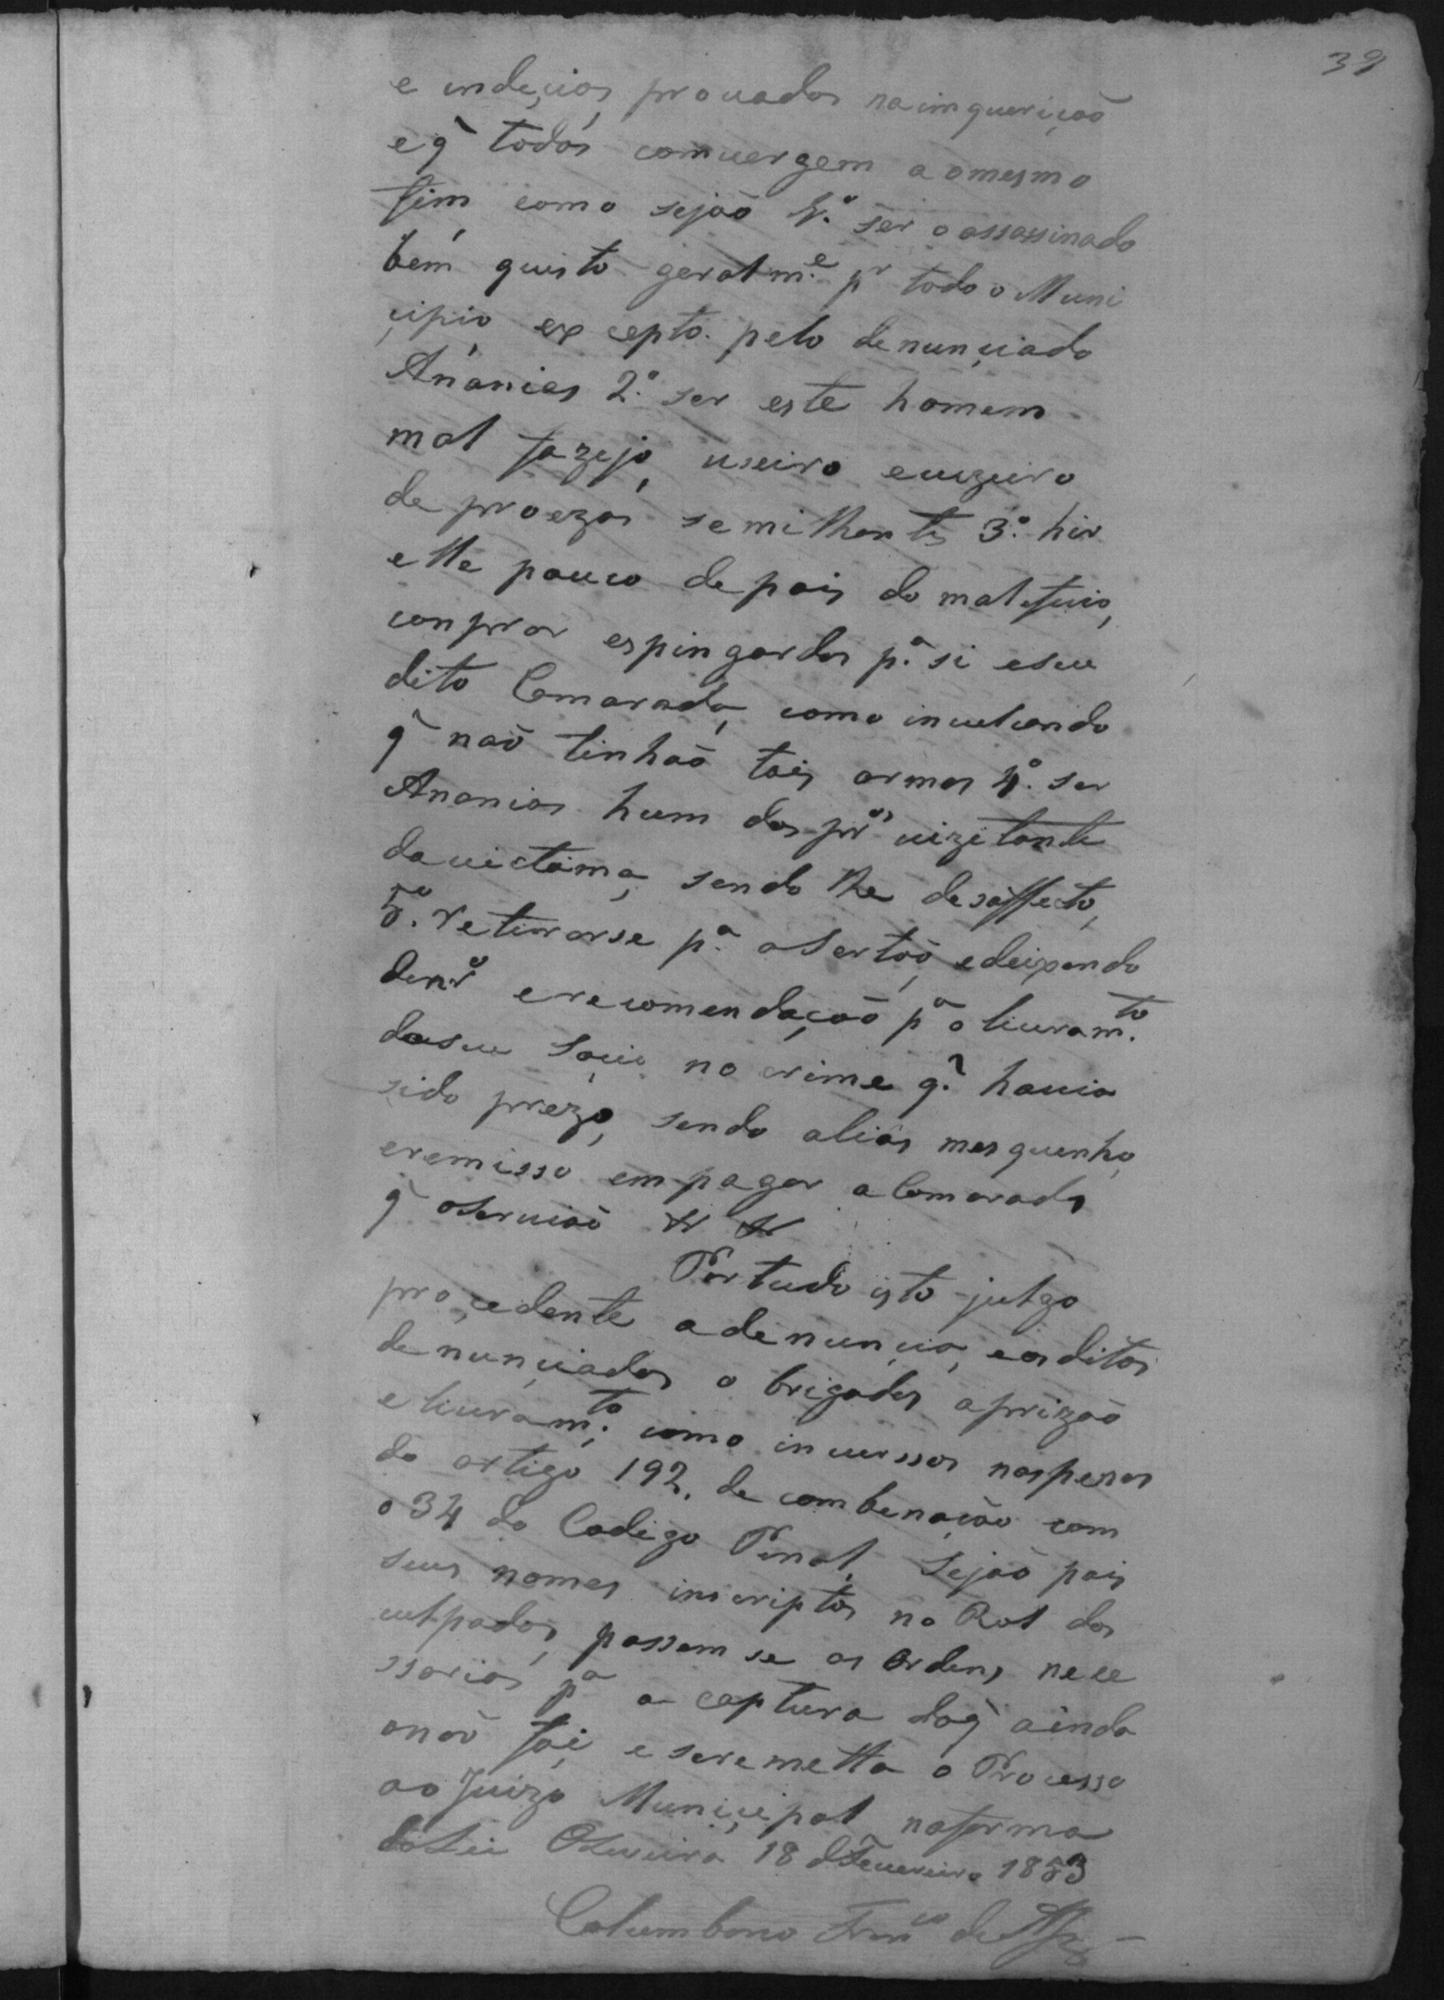 38
e indeçios, provados na imqueriçaõ
e q̃ todos comvergem a o mesmo
fim como sejaõ 1.º ser o assassinado
bem quisto geralm.e pr todo o Muni
çipio, excepto. pelo denunçiado
Ananias 2.º ser este homem
mal fazejo, useiro e uzeiro
de proezas semilhantes 3.º hir
elle pouco depois do malefiçio,
conprar espingardas p.a si e seu
dito Camarada, como inculcando
q̃ naõ tinhaõ tais armas 4.º ser
Ananias hum dos pr.os vizitante
da victima, sendo lhe desaffecto,
5.º retirarse p.a o Sertaõ, e deixando
denr.o e recomendaçaõ p.a o livram.to
do seu Soçio no crime q.̃ havia
sido prezo, sendo alias mesquinho,
e remisso em pagar a Camarada
q̃ o serviaõ
Por tudo isto julgo
proçedente a denunçia, e os ditos
denunçiados obrigados a prizaõ
e livram.to como incurssos nas penas
do artigo 192. de combenaçaõ com
o 34 do Codigo Penal, Sejaõ pois
seus nomes inscriptos no Rol dos
culpados, passem se as Ordens nece
ssarias p.a a captura do q̃ ainda
o naõ foi, e se remetta o Processo
ao Juizo Muniçipal na forma
da Lei Oliveira 18 de Fevereiro 1853
Columbano Fran.co de